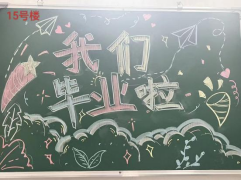 15号楼
我们
毕业啦